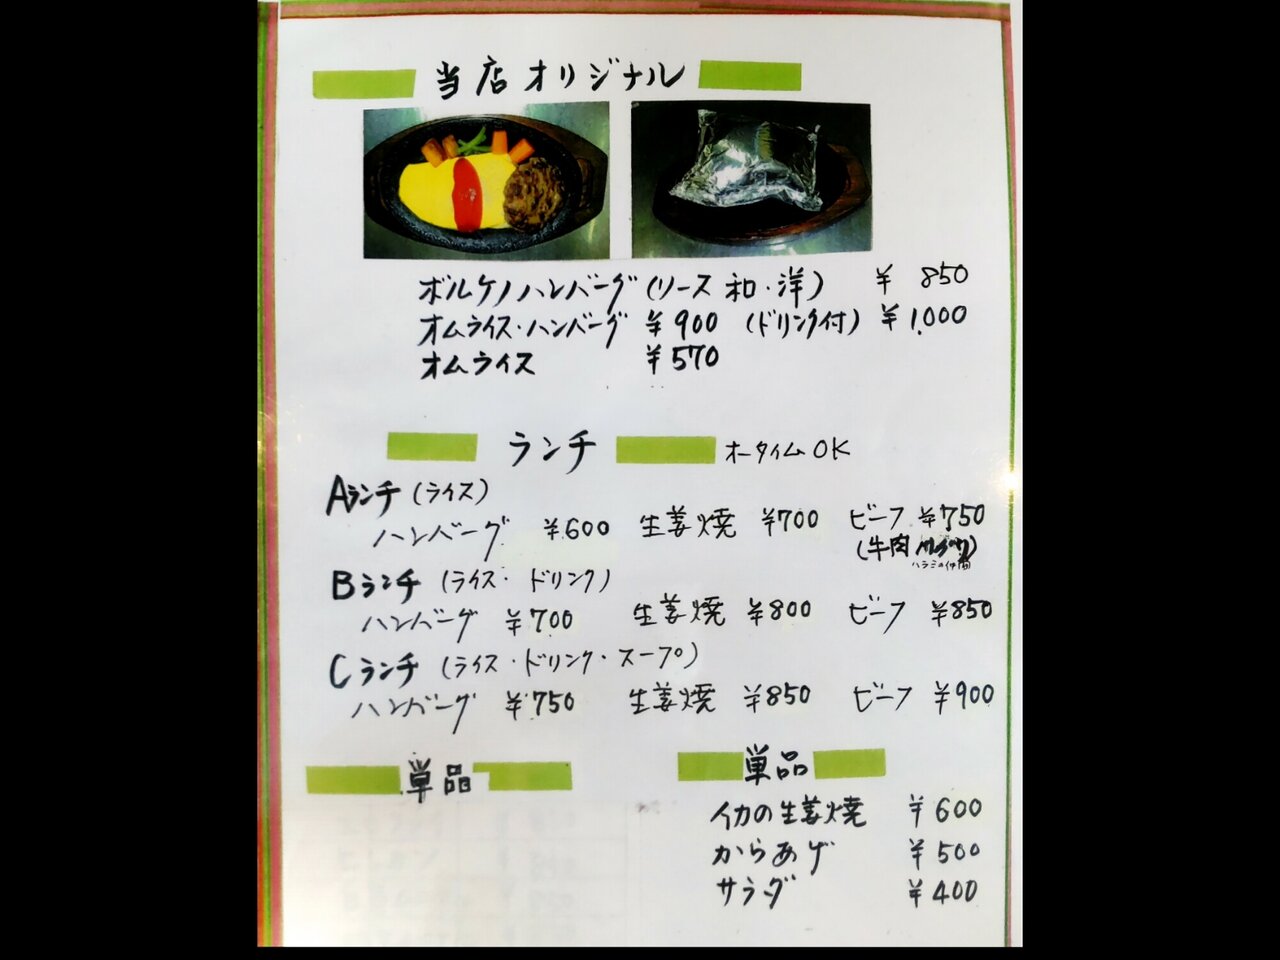 当店オリジナル
ボルケノハンバーグ(ソース 和・洋) ¥850
オムライス・ハンバーグ ¥900 (ドリンク付) ¥1,000
オムライス ¥570
ランチ オータイムOK
Aランチ(ライス)
ハンバーグ ¥600 生姜焼 ¥700 ビーフ ¥750
(牛肉
Bランチ(ライス・ドリンク)
ハンバーグ ¥700 生姜焼 ¥800 ビーフ ¥850
Cランチ(ライス・ドリンク・スープ)
ハンバーグ ¥750 生姜焼 ¥850 ビーフ ¥900
単品
単品
イカの生姜焼 ¥600
からあげ ¥500
サラダ ¥400